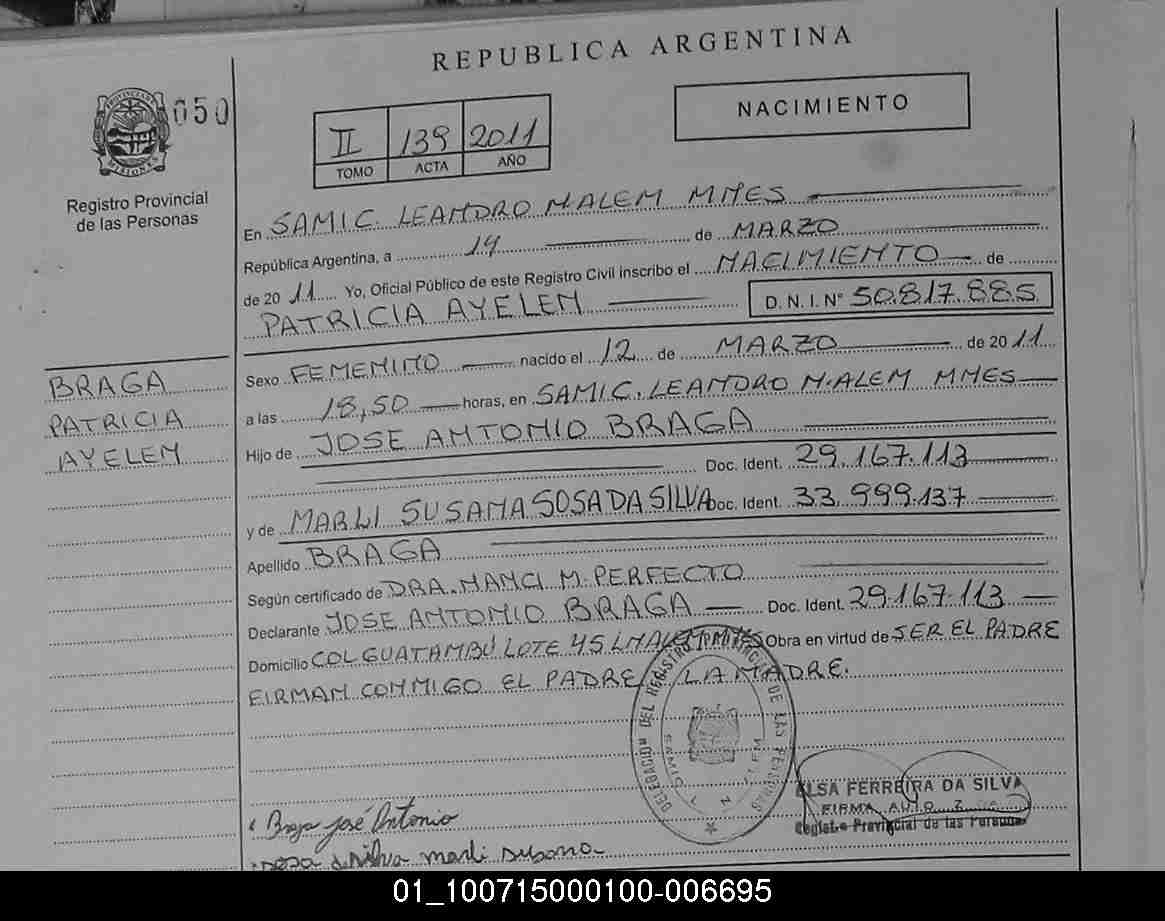 REPUBLICA ARGENTINA
050
PROVINCIA DE MISIONES
Registro Provincial
de las Personas
II 139 2011
TOMO ACTA AÑO
NACIMIENTO
En SAMIC. LEANDRO N. ALEM MNES
República Argentina, a 14 de MARZO
de 20 11 Yo, Oficial Público de este Registro Civil inscribo el NACIMIENTO de
PATRICIA AYELEN D.N.I. N° 50.817.885
BRAGA
PATRICIA
AYELEN
Sexo FEMENINO nacido el 12 de MARZO de 20 11
a las 18,50 horas, en SAMIC. LEANDRO N. ALEM MNES
Hijo de JOSE ANTONIO BRAGA
Doc. Ident. 29.167.113
y de MARLI SUSANA SOSA DA SILVA Doc. Ident. 33.999.137
Apellido BRAGA
Según certificado de DRA. NANCI M. PERFECTO
Declarante JOSE ANTONIO BRAGA Doc. Ident. 29.167.113
Domicilio COL GUATAMBÚ LOTE 45 LNALEM MNES Obra en virtud de SER EL PADRE
FIRMAN CONMIGO EL PADRE / LA MADRE.
DELEGACION DEL REGISTRO PROVINCIAL DE LAS PERSONAS
SAMIC L. N. ALEM
ELSA FERREIRA DA SILVA
FIRMA AUTO
Registro Provincial de las Personas
Braga José Antonio
sosa da silva marli susana
01_100715000100-006695